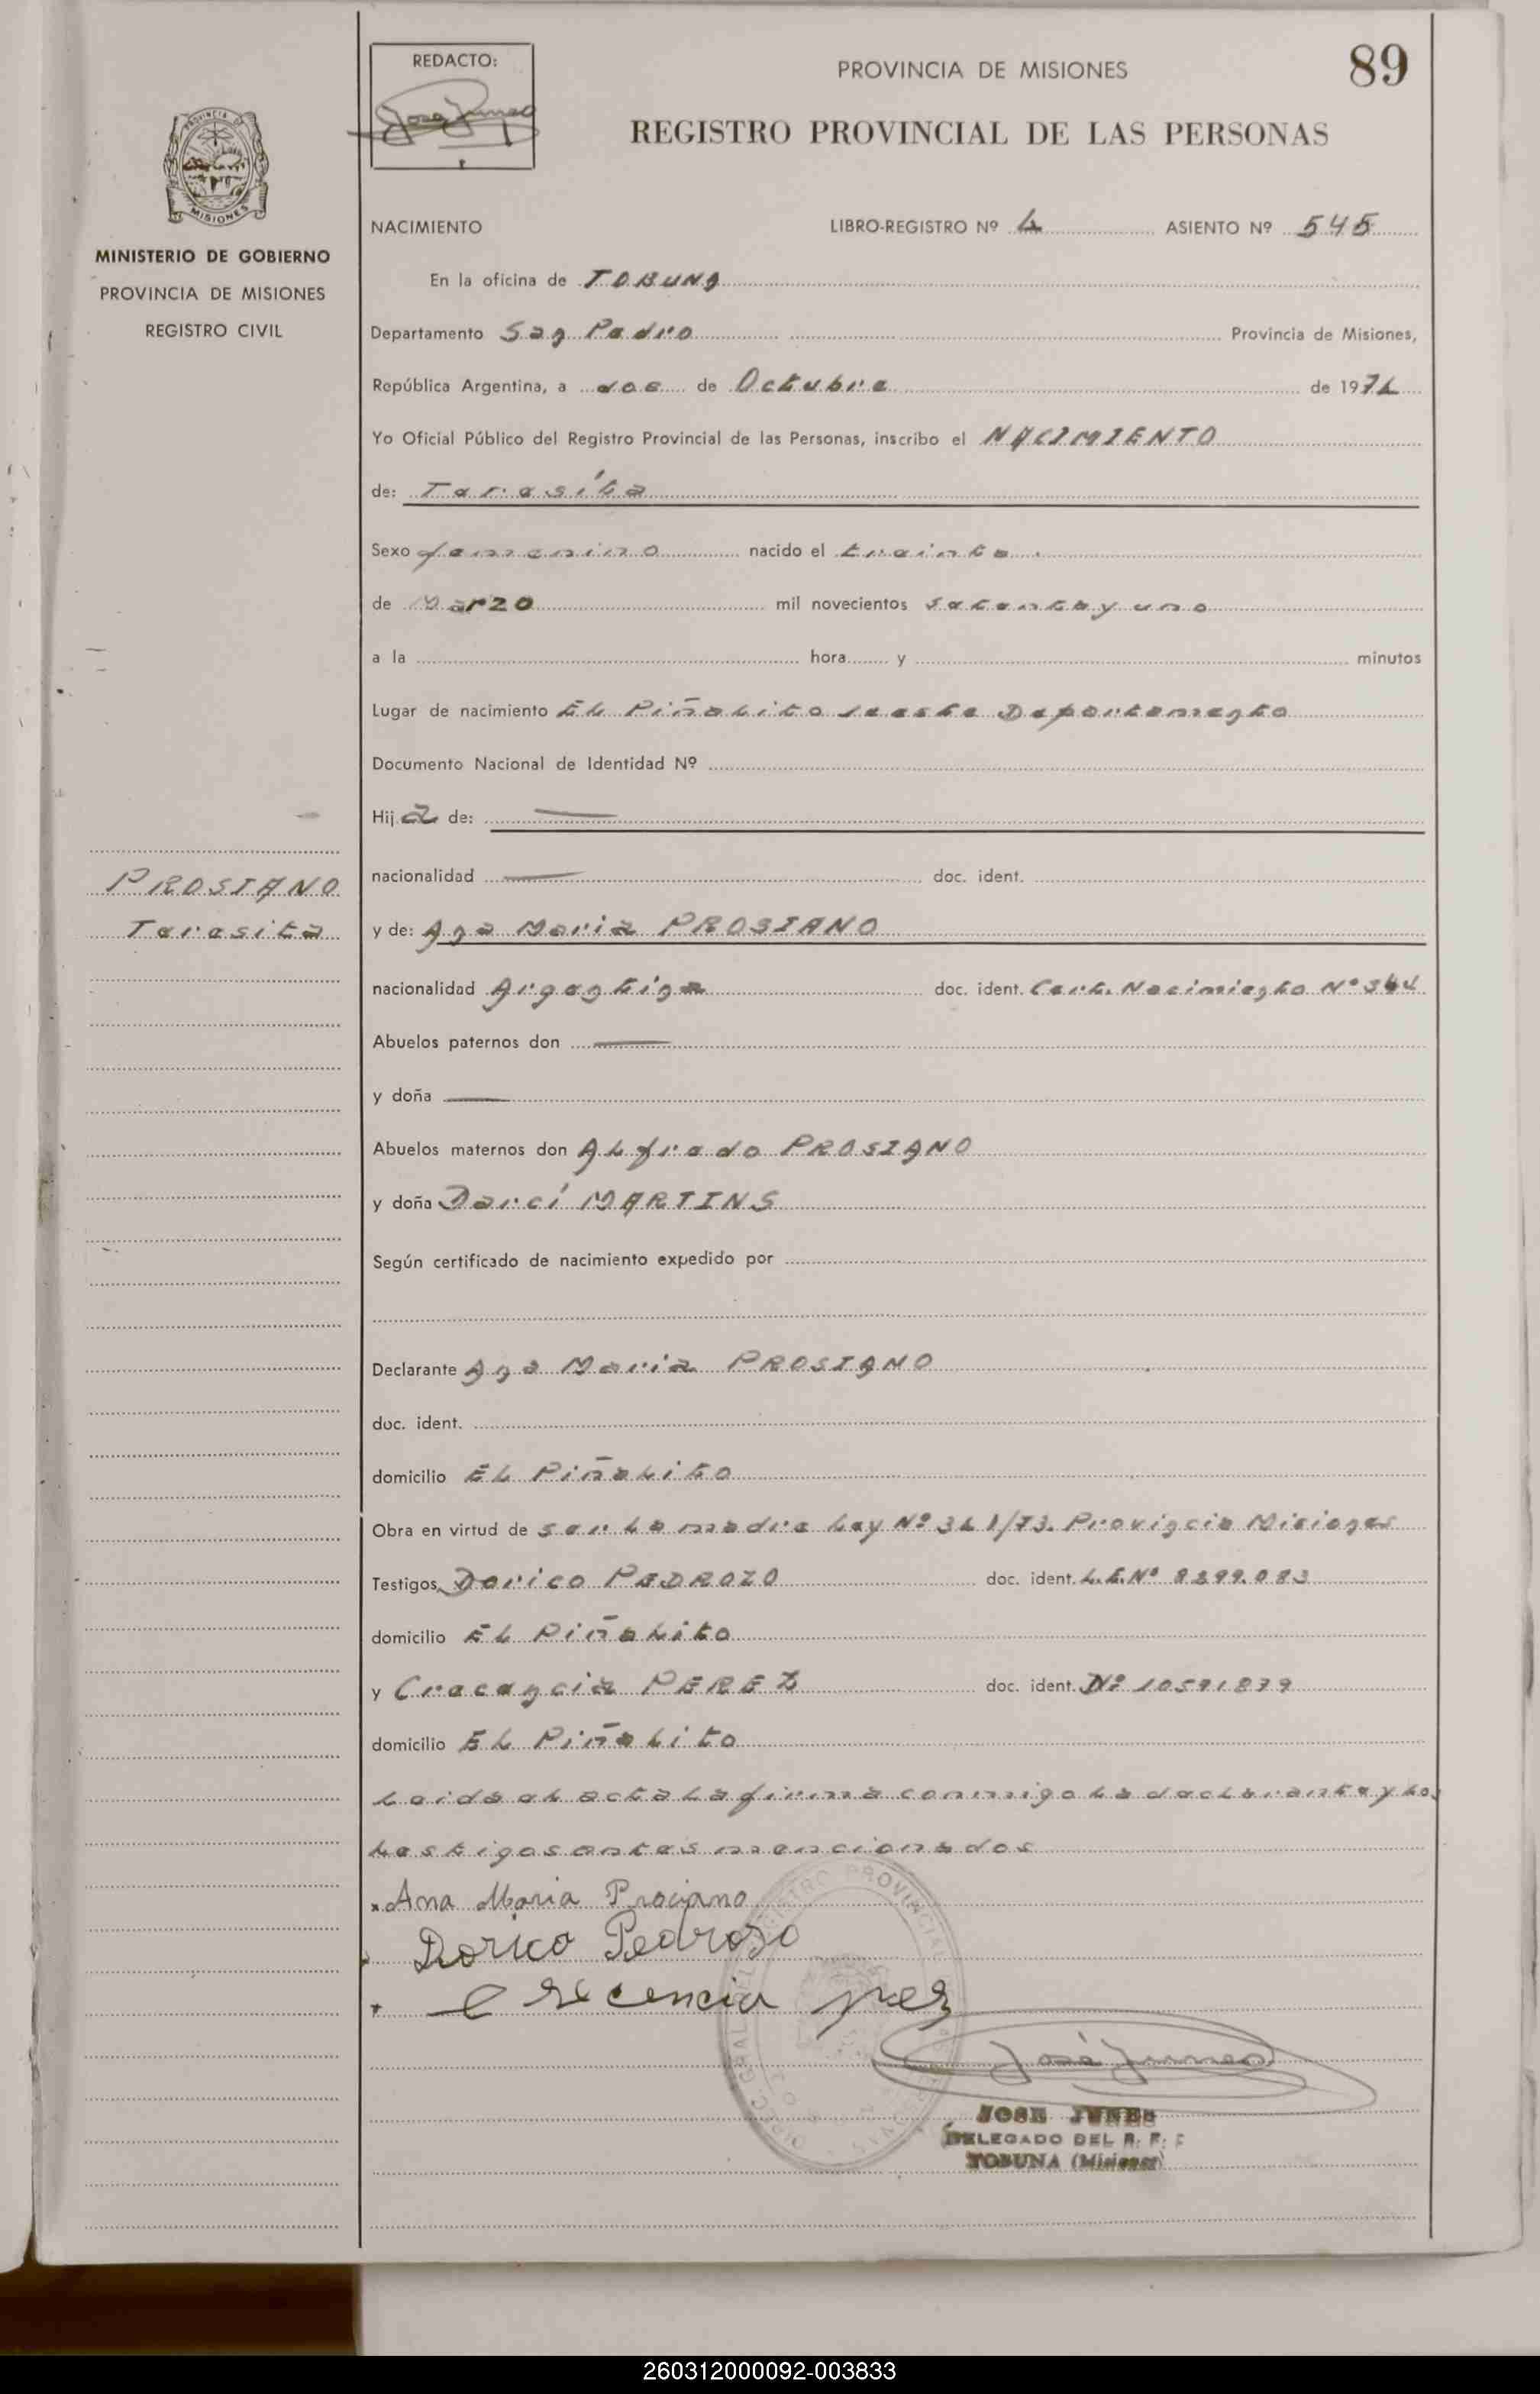 89
REDACTO:
PROVINCIA DE MISIONES
REGISTRO PROVINCIAL DE LAS PERSONAS
PROVINCIA DE
MISIONES
MINISTERIO DE GOBIERNO
PROVINCIA DE MISIONES
REGISTRO CIVIL
NACIMIENTO LIBRO-REGISTRO Nº 4 ASIENTO Nº 545
En la oficina de TOBUNA
Departamento San Pedro Provincia de Misiones,
República Argentina, a dos de Octubre de 1974
Yo Oficial Público del Registro Provincial de las Personas, inscribo el NACIMIENTO
de: Teresita
Sexo femenino nacido el treinta
de Marzo mil novecientos setenta y uno
a la hora y minutos
Lugar de nacimiento EL Piñalito de este Departamento
Documento Nacional de Identidad Nº
Hija de: —
nacionalidad — doc. ident.
PROSIANO
Teresita
y de: Ana Maria PROSIANO
nacionalidad Argentina doc. ident. Cert. Nacimiento Nº
Abuelos paternos don —
y doña —
Abuelos maternos don Alfredo PROSIANO
y doña Darcí MARTINS
Según certificado de nacimiento expedido por
Declarante Ana Maria PROSIANO
doc. ident.
domicilio EL Piñalito
Obra en virtud de ser la madre Ley Nº 341/73. Provincia Misiones
Testigos Dorico PEDROZO doc. ident. L.E. Nº 8299.083
domicilio EL Piñalito
y Crecencia PEREZ doc. ident. Nº 10591879
domicilio EL Piñalito
Leida el acta la firma conmigo la declarante y los
testigos antes mencionados
Ana Maria Prociano
Dorico Pedroso
Crecencia
José Junes
JOSE JUNES
DELEGADO DEL R. P.
TOBUNA (Misiones)
260312000092-003833